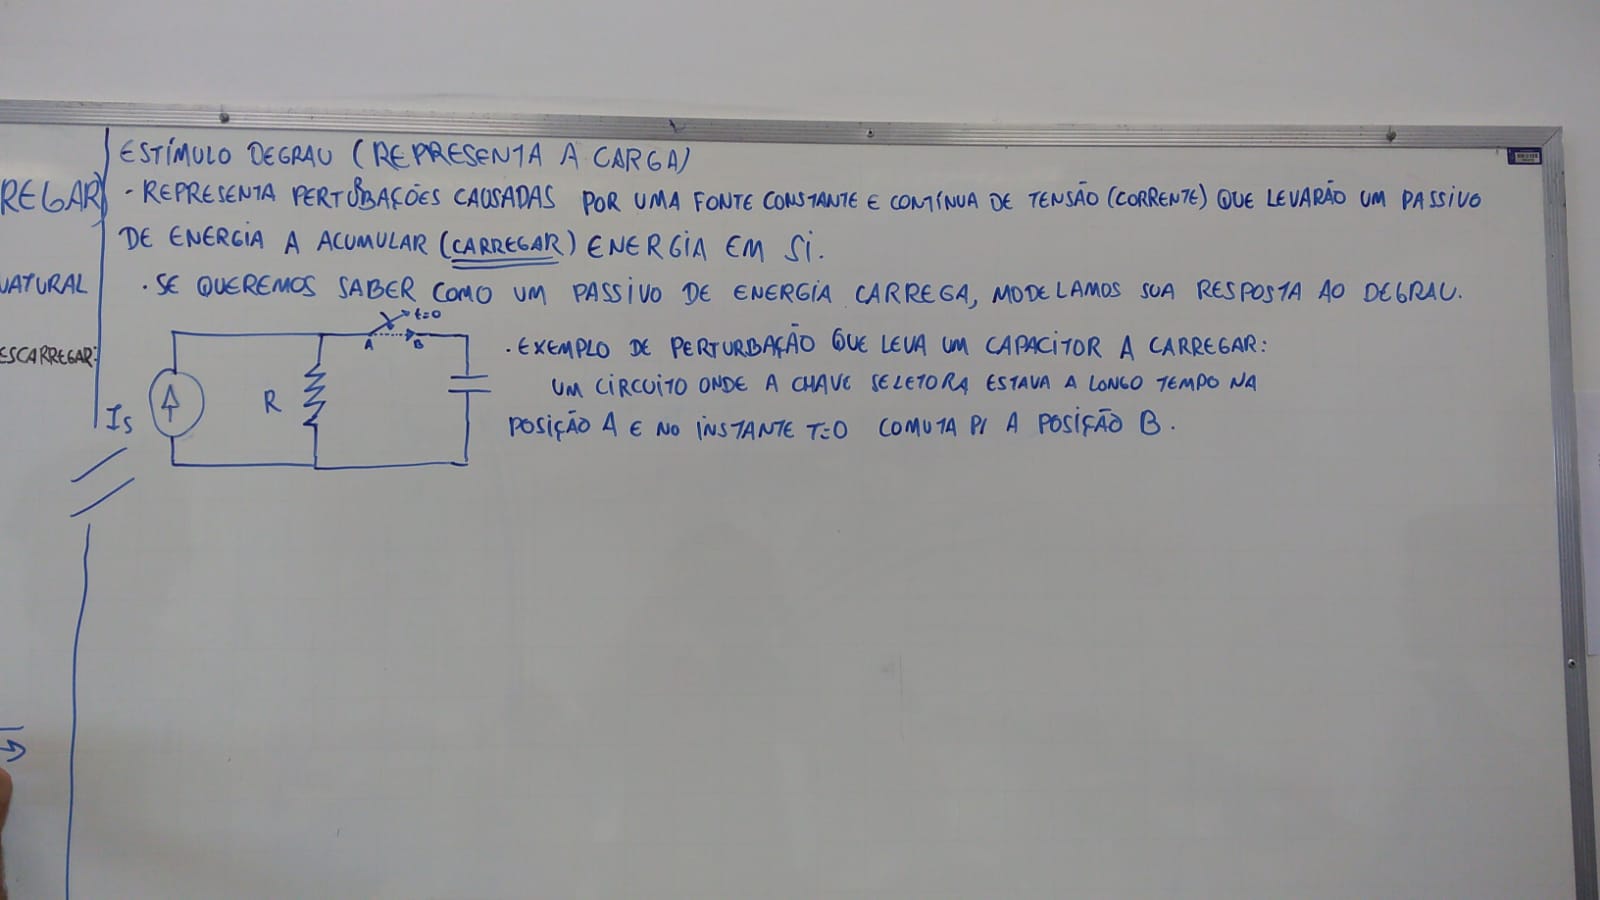 ESTÍMULO DEGRAU (REPRESENTA A CARGA)
REGAR)
- REPRESENTA PERTURBAÇÕES CAUSADAS POR UMA FONTE CONSTANTE E CONTÍNUA DE TENSÃO (CORRENTE) QUE LEVARÃO UM PASSIVO
DE ENERGIA A ACUMULAR (CARREGAR) ENERGIA EM SI.
NATURAL
. SE QUEREMOS SABER COMO UM PASSIVO DE ENERGIA CARREGA, MODELAMOS SUA RESPOSTA AO DEGRAU.
t=0
A B
ESCARREGAR:
. EXEMPLO DE PERTURBAÇÃO QUE LEVA UM CAPACITOR A CARREGAR:
UM CIRCUITO ONDE A CHAVE SELETORA ESTAVA A LONGO TEMPO NA
POSIÇÃO A E NO INSTANTE T=0 COMUTA P/ A POSIÇÃO B.
R
Is